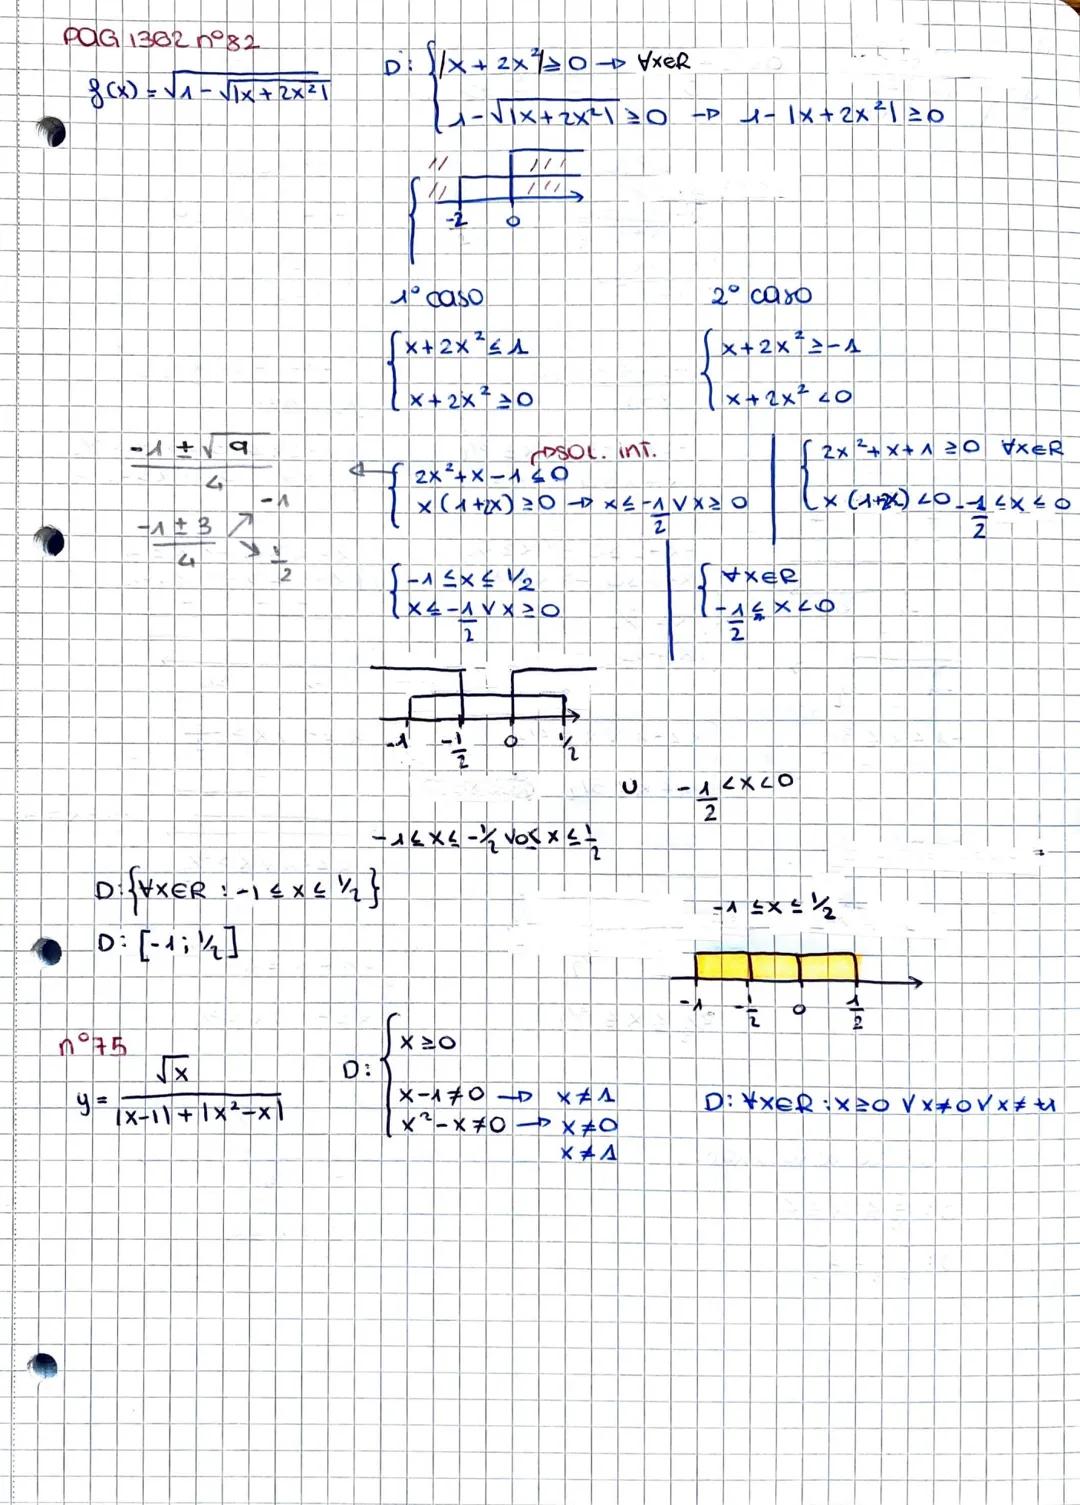 PAG 1302 n°82
f(x) = √(1 - √|x + 2x²|)
D: { |x + 2x²| ≥ 0 → ∀x∈R
1 - √|x + 2x²| ≥ 0 → 1 - |x + 2x²| ≥ 0
-2 0
1° caso
{ x + 2x² ≤ 1
x + 2x² ≥ 0
2° caso
{ x + 2x² ≥ -1
x + 2x² < 0
(-1 ± √9)/4
(-1 ± 3)/4 -1
1/2
→ SOL. INT.
{ 2x² + x - 1 ≤ 0
x(1+2x) ≥ 0 → x ≤ -1/2 ∨ x ≥ 0
{ 2x² + x + 1 ≥ 0 ∀x∈R
x(1+2x) < 0 -1/2 ≤ x ≤ 0
{ -1 ≤ x ≤ 1/2
x ≤ -1/2 ∨ x ≥ 0
{ ∀x∈R
-1/2 ≤ x < 0
-1 -1/2 0 1/2
∪ -1/2 < x < 0
-1 ≤ x ≤ -1/2 ∨ 0 ≤ x ≤ 1/2
D: {∀x∈R : -1 ≤ x ≤ 1/2}
D: [-1; 1/2]
-1 ≤ x ≤ 1/2
-1 -1/2 0 1/2
n°75
y = √x / (|x-1| + |x²-x|)
D: { x ≥ 0
x - 1 ≠ 0 → x ≠ 1
x² - x ≠ 0 → x ≠ 0
x ≠ 1
D: ∀x∈R : x ≥ 0 ∨ x ≠ 0 ∨ x ≠